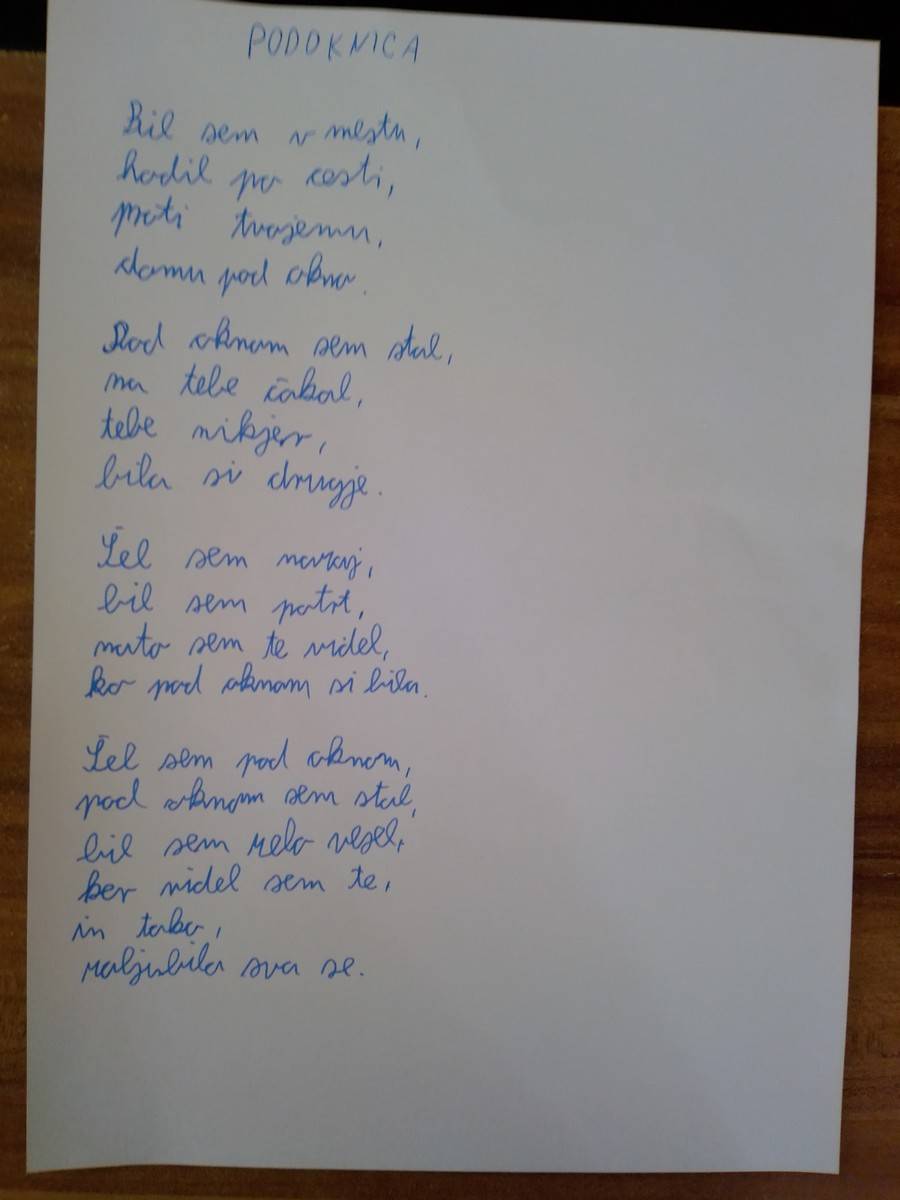 PODOKNICA
Bil sem v mestu,
hodil po cesti,
proti tvojemu,
domu pod okno.
Pod oknom sem stal,
na tebe čakal,
tebe nikjer,
bila si drugje.
Šel sem nazaj,
bil sem potrt,
nato sem te videl,
ko pod oknom si bila.
Šel sem pod oknom,
pod oknom sem stal,
bil sem zelo vesel,
ker videl sem te,
in tako,
zaljubila sva se.